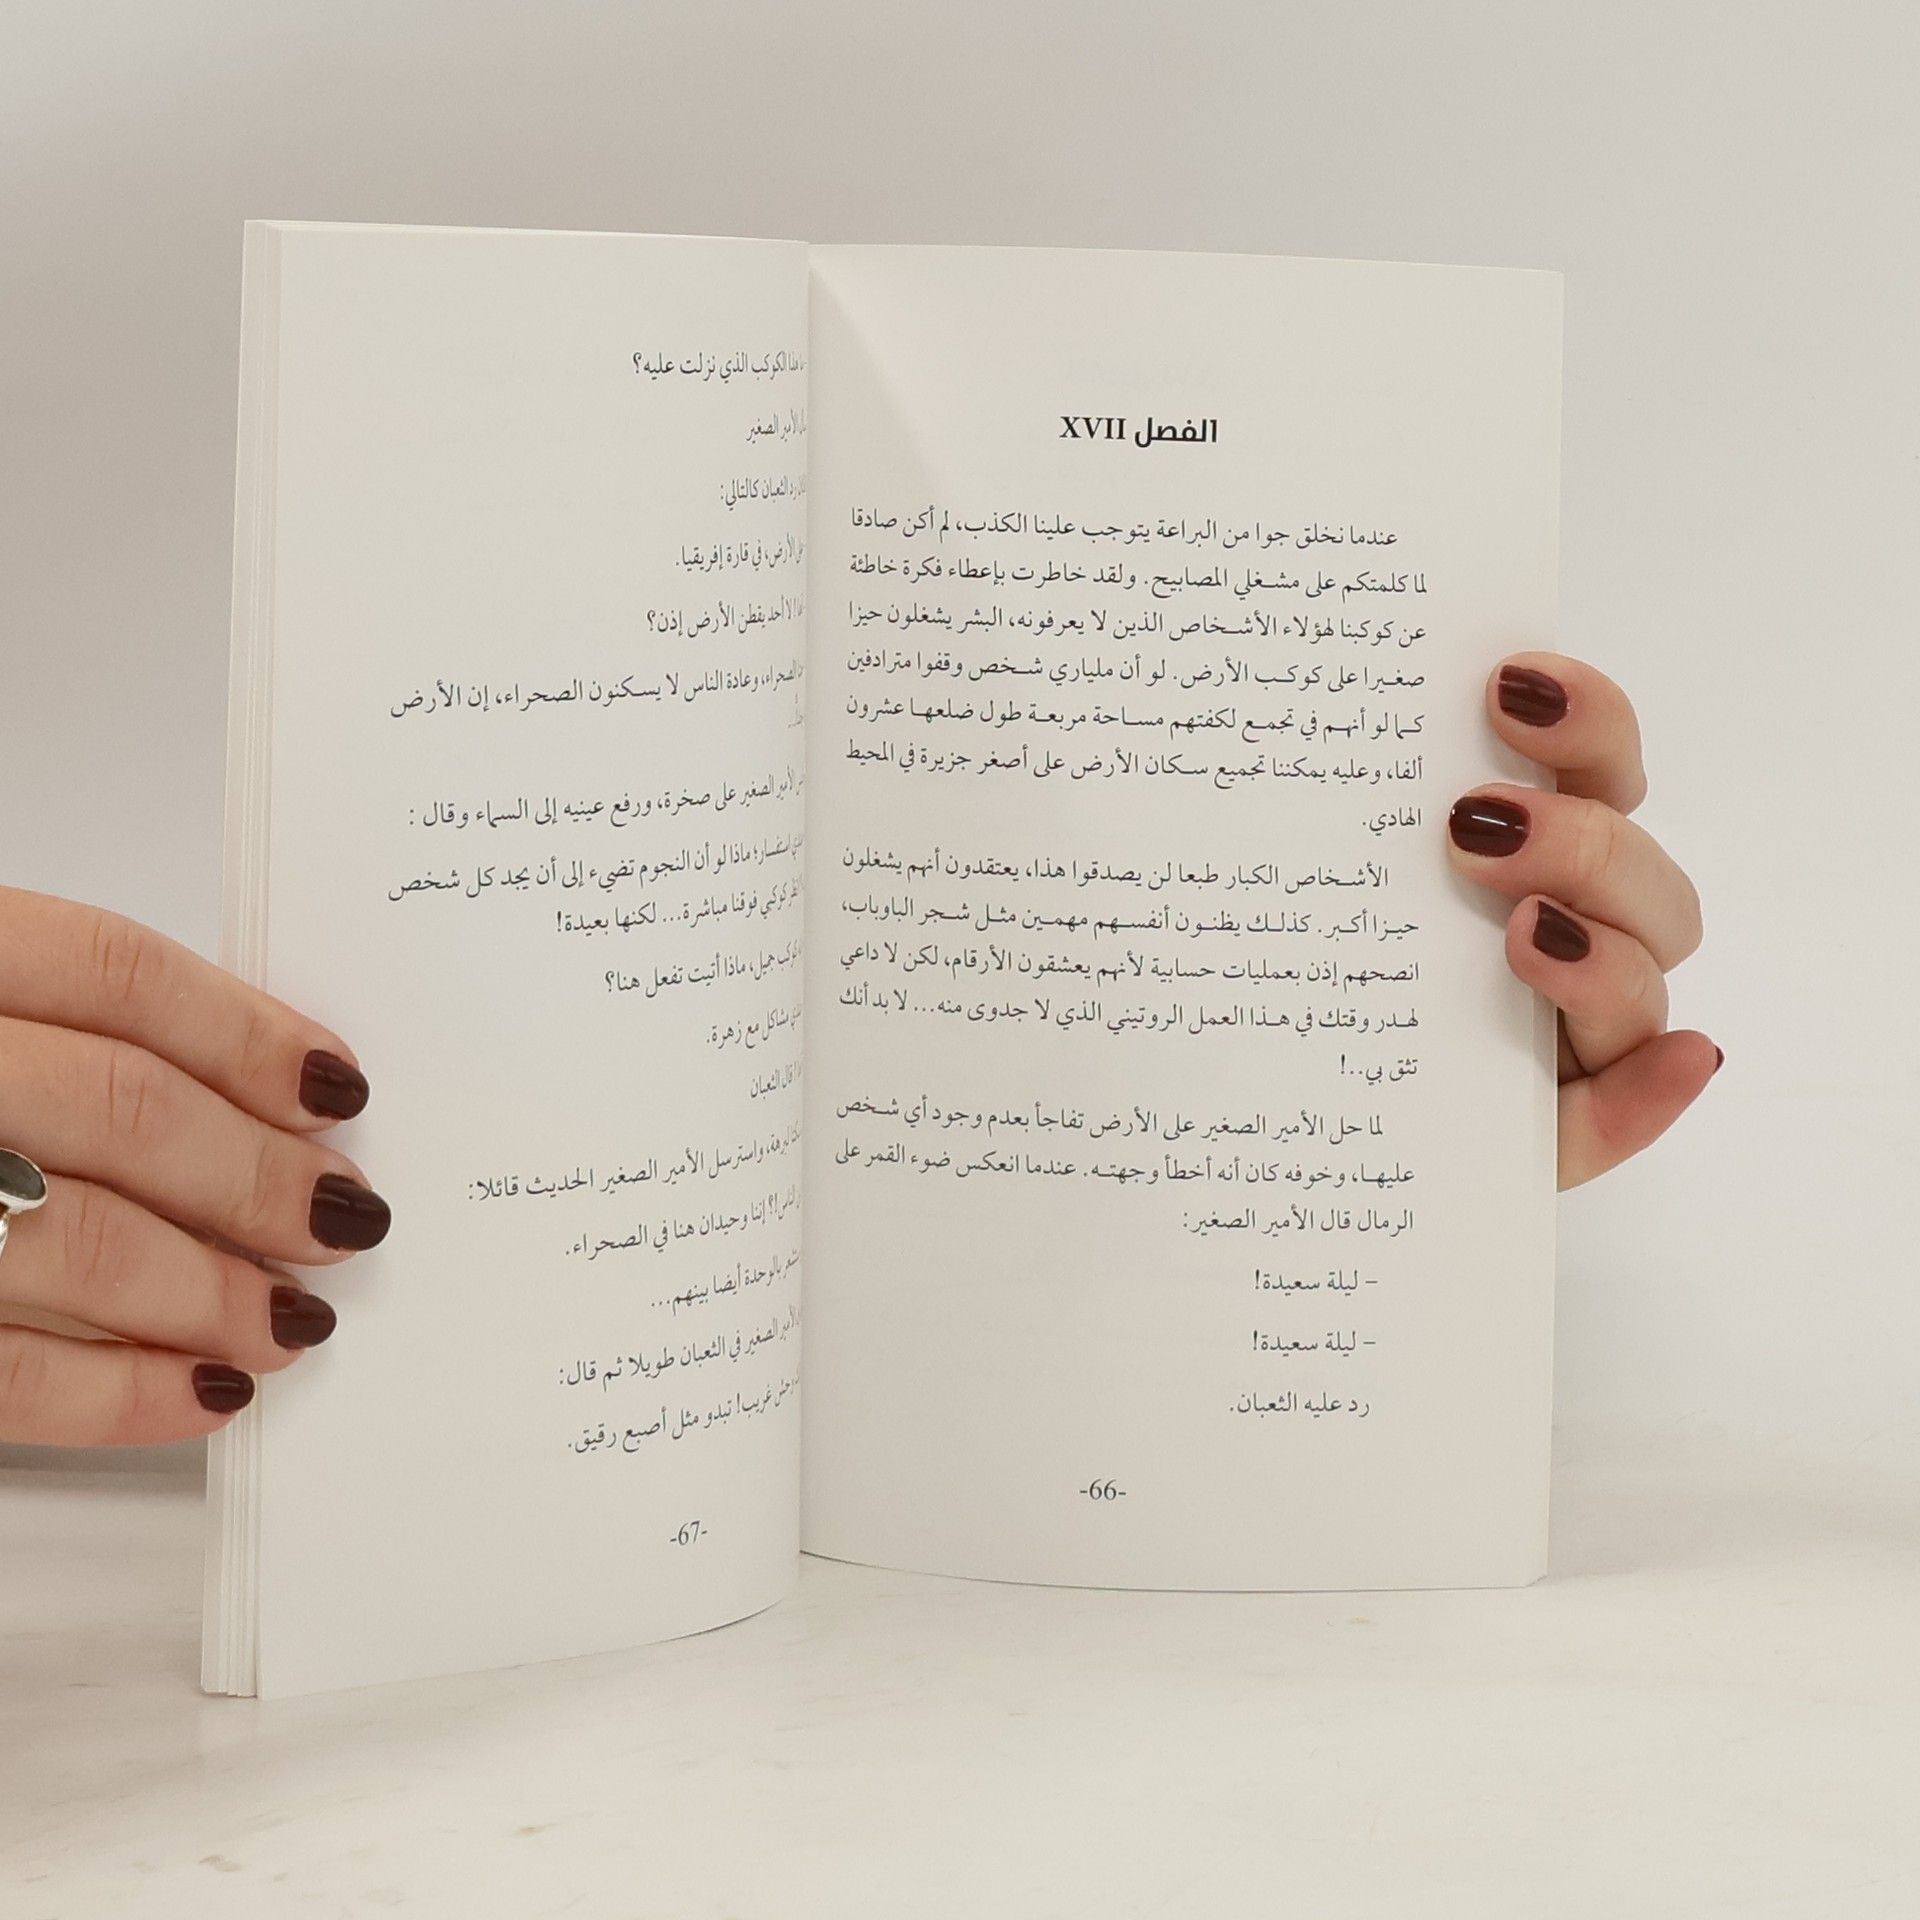 الفصل XVII
عندما نخلق جوا من البراعة يتوجب علينا الكذب، لم أكن صادقا
لما كلمتكم على مشغلي المصابيح. ولقد خاطرت بإعطاء فكرة خاطئة
عن كوكبنا لهؤلاء الأشخاص الذين لا يعرفونه، البشر يشغلون حيزا
صغيرا على كوكب الأرض. لو أن ملياري شخص وقفوا مترادفين
كما لو أنهم في تجمع لكفتهم مساحة مربعة طول ضلعها عشرون
ألفا، وعليه يمكننا تجميع سكان الأرض على أصغر جزيرة في المحيط
الهادي.
الأشخاص الكبار طبعا لن يصدقوا هذا، يعتقدون أنهم يشغلون
حيزا أكبر. كذلك يظنون أنفسهم مهمين مثل شجر الباوباب،
انصحهم إذن بعمليات حسابية لأنهم يعشقون الأرقام، لكن لا داعي
لهدر وقتك في هذا العمل الروتيني الذي لا جدوى منه... لا بد أنك
تثق بي..!
لما حل الأمير الصغير على الأرض تفاجأ بعدم وجود أي شخص
عليها، وخوفه كان أنه أخطأ وجهته. عندما انعكس ضوء القمر على
الرمال قال الأمير الصغير:
– ليلة سعيدة!
– ليلة سعيدة!
رد عليه الثعبان.
-66-
هذا الكوكب الذي نزلت عليه؟
الأمير الصغير
رد الثعبان كالتالي:
الأرض، في قارة إفريقيا.
لا أحد يقطن الأرض إذن؟
الصحراء، وعادة الناس لا يسكنون الصحراء، إن الأرض
الأمير الصغير على صخرة، ورفع عينيه إلى السماء وقال :
استفسار؛ ماذا لو أن النجوم تضيء إلى أن يجد كل شخص
كوكبي فوقنا مباشرة... لكنها بعيدة!
كوكب جميل، ماذا أتيت تفعل هنا؟
مشاكل مع زهرة.
قال الثعبان
لبرهة، واسترسل الأمير الصغير الحديث قائلا:
الناس!؟ إننا وحيدان هنا في الصحراء.
بالوحدة أيضا بينهم...
الأمير الصغير في الثعبان طويلا ثم قال:
وحش غريب! تبدو مثل أصبع رقيق.
-67-